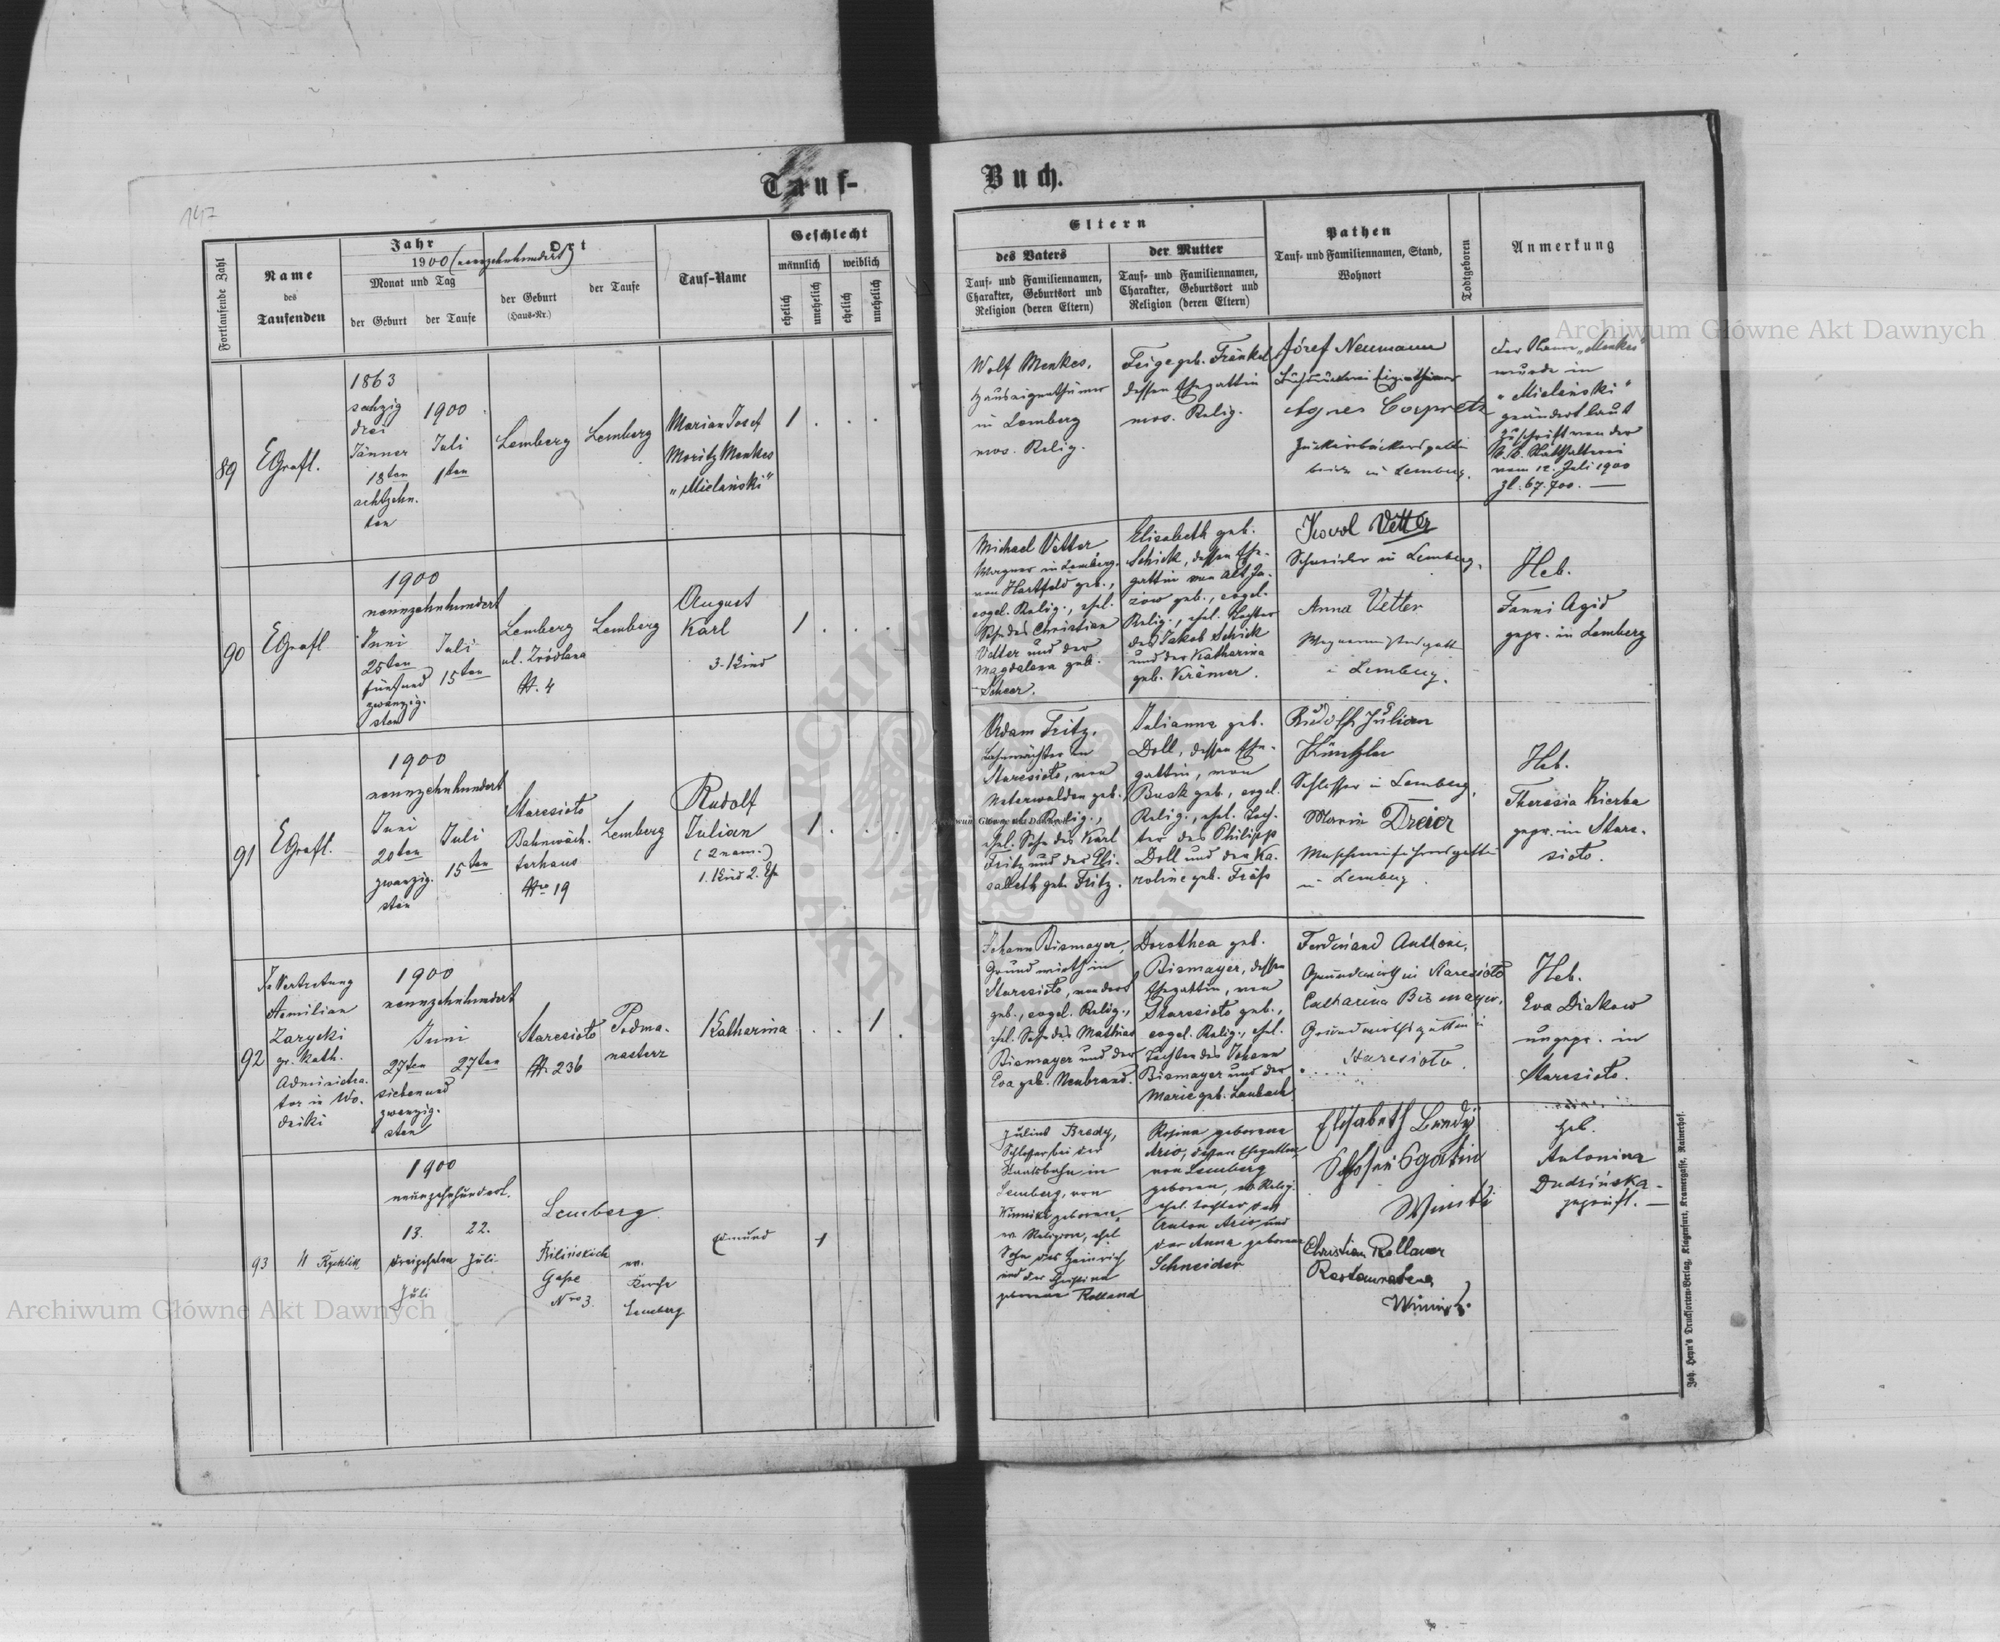 147
Tauf-
Buch.
Fortlaufende Zahl
Name
des
Taufenden
Jahr
1900 (neunzehnhundert)
Monat und Tag
der Geburt
der Taufe
Ort
der Geburt
(Haus-Nr.)
der Taufe
Tauf-Name
Geschlecht
männlich
weiblich
ehelich
unehelich
ehelich
unehelich
Eltern
des Vaters
Tauf- und Familiennamen,
Charakter, Geburtsort und
Religion (deren Eltern)
der Mutter
Tauf- und Familiennamen,
Charakter, Geburtsort und
Religion (deren Eltern)
Pathen
Tauf- und Familiennamen, Stand,
Wohnort
Todtgeboren
Anmerkung
89
EGrafl.
1863
sechzig
drei
Jänner
18ten
achtzehn-
ten
1900
Juli
1ten
Lemberg
Lemberg
Marian Josef
Moritz Menkes
"Mieleński"
1
Wolf Menkes,
Hauseigenthümer
in Lemberg
mos. Relig.
Feige geb. Fränkel
dessen Ehegattin
mos. Relig.
Józef Neumann
Agnes
Zuckerbäckersgattin
in Lemberg.
Der Name "Menkes"
wurde in
"Mieleński"
geändert laut
Zuschrift von der
k.k. Statthalterei
vom 12. Juli 1900
Zl. 67.700.
90
EGrafl
1900
neunzehnhundert
Juni
25ten
fünfund
zwanzig-
sten
Juli
15ten
Lemberg
ul. Zródlana
N. 4
Lemberg
August
Karl
3. Kind
1
Michael Vetter
Wagner in Lemberg,
von Hartfeld geb.,
evgel. Relig., ehel.
Sohn des Christian
Vetter und der
Magdalena geb.
Scheer.
Elisabeth geb.
Schick, dessen Ehe-
gattin von Alt Ja-
zow geb., evgel.
Relig., ehel. Tochter
des Jakob Schick
und der Katharina
geb. Krämer.
Karol Vetter
Schneider in Lemberg.
Anna Vetter
Wagnermeistersgatt
i Lemberg.
Heb.
Fanni Agid
gepr. in Lemberg
91
EGrafl.
1900
neunzehnhundert
Juni
20ten
zwanzig-
sten
Juli
15ten
Staresioło
Bahnwäch-
terhaus
Nro 19
Lemberg
Rudolf
Julian
(2 nam.)
1. Kind 2. Eh
1
Adam Fritz,
Bahnwächter in
Staresioło, von
Unterwalden geb.
evgel. Relig.,
ehel. Sohn des Karl
Fritz und der Eli-
sabeth geb. Fritz.
Julianna geb.
Doll, dessen Ehe-
gattin, von
Busk geb., evgel.
Relig., ehel. Toch-
ter des Philipp
Doll und der Ka-
roline geb. Fräss
Rudolf Julian
Küntzler
Schlosser in Lemberg,
Maria Dreier
Maschinenführersgattin
in Lemberg.
Heb.
Theresia Kierba
gepr. in Stare-
sioło.
92
In Vertretung
Aemilian
Zarycki
gr. kath.
Administra-
tor in Wo-
dniki
1900
neunzehnhundert
Juni
27ten
siebenund
zwanzig-
sten
27ten
Staresioło
N. 236
Podma-
nasterz
Katharina
1
Johann Bismayer,
Grundwirth in
Staresioło, von dort
geb., evgel. Relig.,
ehel. Sohn des Mathias
Bismayer und der
Eva geb. Neubrand.
Dorothea geb.
Bismayer, dessen
Ehegattin, von
Staresioło geb.,
evgel. Relig., ehel.
Tochter des Johann
Bismayer und der
Marie geb. Laubach.
Ferdinand Antoni,
Grundwirth in Staresioło
Catharina Bismayer,
Grundwirthsgattin in
Staresioło.
Heb.
Eva Diakow
ungepr. in
Staresioło.
93
1900
neunzehnhundert.
13.
dreizehnten
Juli
22.
Juli
Lemberg
Bilińskich
Gasse
Nro 3.
ev.
Kirche
Lemberg
Edmund
1
Julius Bredy,
Schlosser bei der
Staatsbahn in
Lemberg, von
Winniki geboren,
ev. Religion, ehel.
Sohn des Heinrich
und der Christina
geborene Rolland
Rosina geborene
dessen Ehegattin,
von Lemberg
geboren, ev. Relig.
ehel. Tochter des
Anton und
der Anna geborene
Schneider
Elisabeth
Christian
Heb.
Antonina
Dudzińska
geprüft.
Joh. Heyn's Drucksorten-Verlag, Klagenfurt, Kramergasse, Rainerhof.
Archiwum Główne Akt Dawnych
Archiwum Główne Akt Dawnych
Archiwum Główne Akt Dawnych